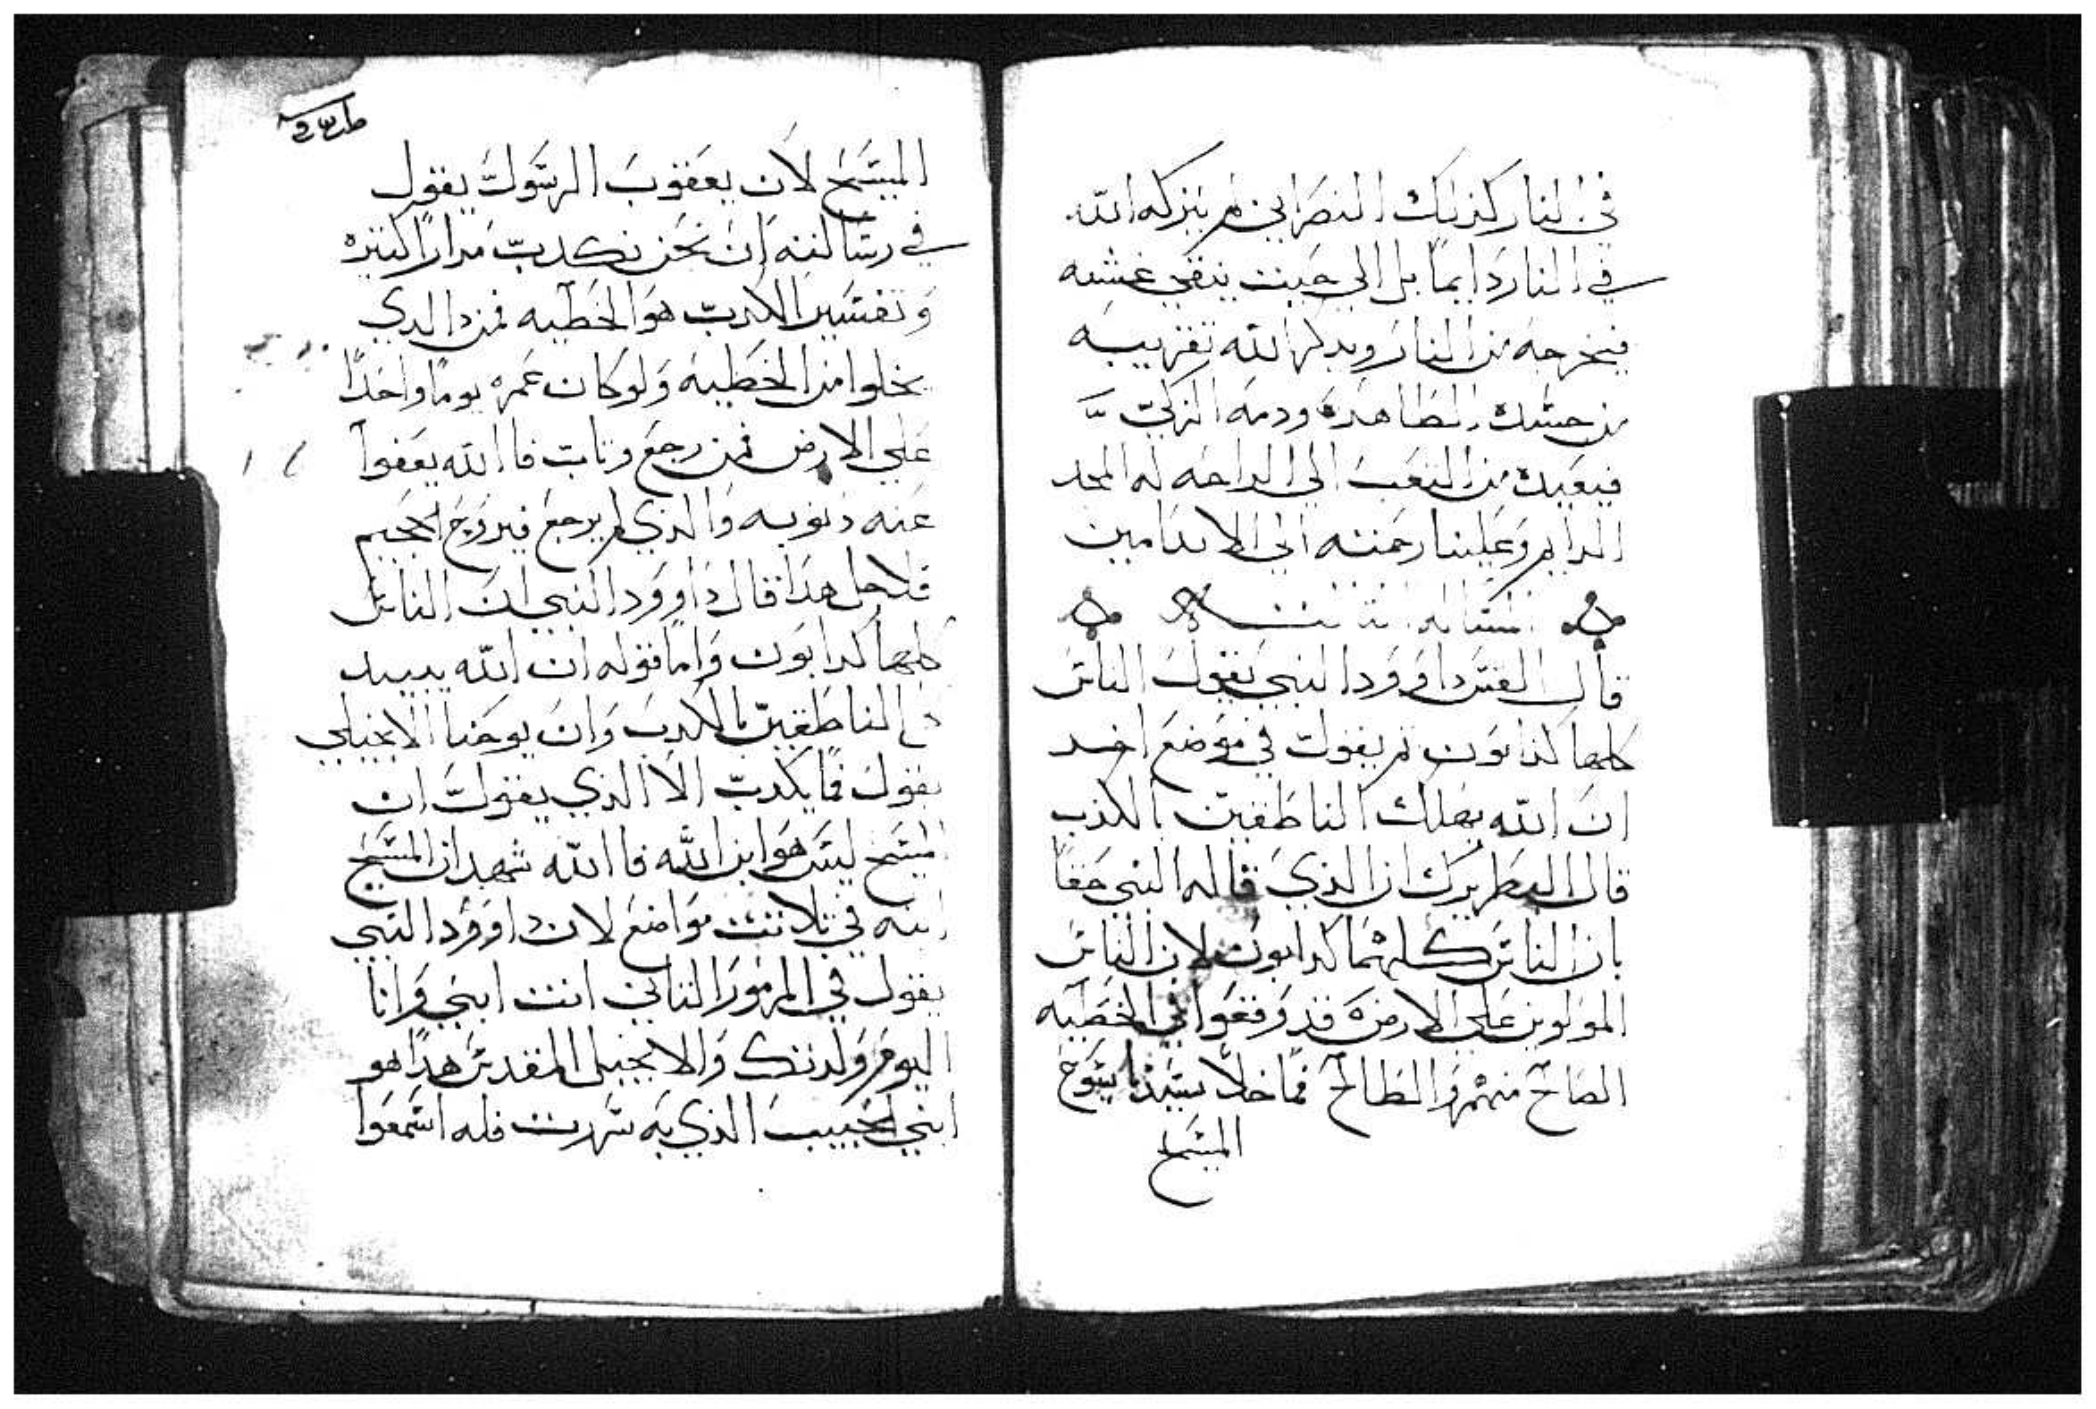 في النار كذلك النصراني لم يتركه الله
في النار دايما بل الي حيت ينقي غشه
فيخرجه من النار ويدكر الله تقريبه
من جسده الطاهره ودمه الزكي
فيعيده من التعب الي الراحه له المجد
الدايم وعلينا رحمته الي الابد امين
قال القس داوود النبي يقول الناس
كلها كذابون تم يقول في موضع اخر
ان الله يهلك الناطقين بالكذب
قال البطريرك ان الذي قاله النبي حقا
بان الناس كلهما كدابون لان الناس
المولوين علي الارض قد وقعوا في الخطيه
الصالح منهم والطالح فما خلا سيدنا يسوع
المسيح
المسيح لان يعقوب الرسول يقول
في رسالته ان نحن نكدب مرارا كتيره
وتفسير الكدب هو الخطيه فمن دا الدي
يخلوا من الخطيه ولو كان عمره يوما واحدا
علي الارض فمن رجع وتاب فا الله يعفوا
عنه دنوبه والذي لم يرجع فيرد الجحيم
فلاجل هدا قال داوود النبي ان الناس
كلها كدابون واما قوله ان الله يبيد
الناطقين بالكدب وان يوحنا الانجيلي
يقول فما يكدب الا الذي يقول ان
المسيح ليس هو ابن الله فا الله شهد ان المسيح
ابنه في تلاتت مواضع لان داوود النبي
يقول في المزمور التاني انت ابني وانا
اليوم ولدتك والانجيل المقدس هدا هو
ابني الحبيب الذي به سررت فله اسمعوا